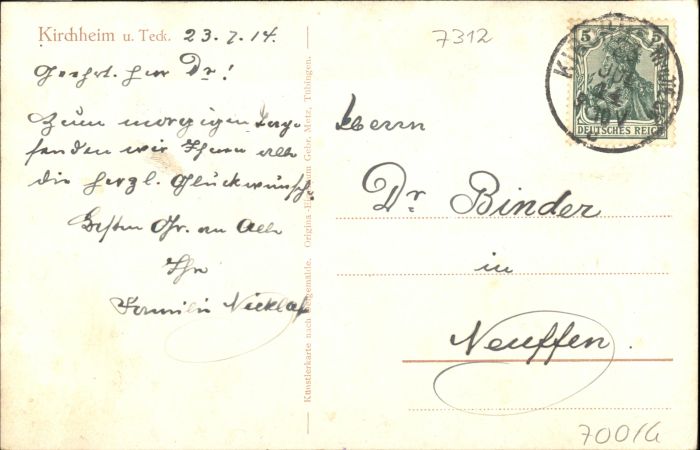 Kirchheim u. Teck. 23.7.14.
Geehrt. Herr Dr!
Zum morgigen Tage
senden wir Ihnen alle
die herzl. Glückwünsche
Besten Gr. an Alle
Ihr
Familie Nicklas
Künstlerkarte nach Ölgemälde. Original-Eigentum Gebr. Metz, Tübingen.
7312
5
DEUTSCHES REICH
Herrn
Dr. Binder
in
Neuffen.
7001G